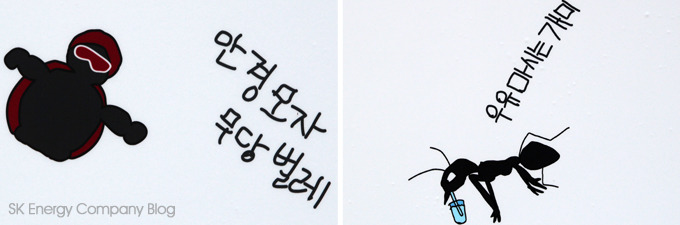 안경모자
무당벌레
SK Energy Company Blog
우유 마시는 개미